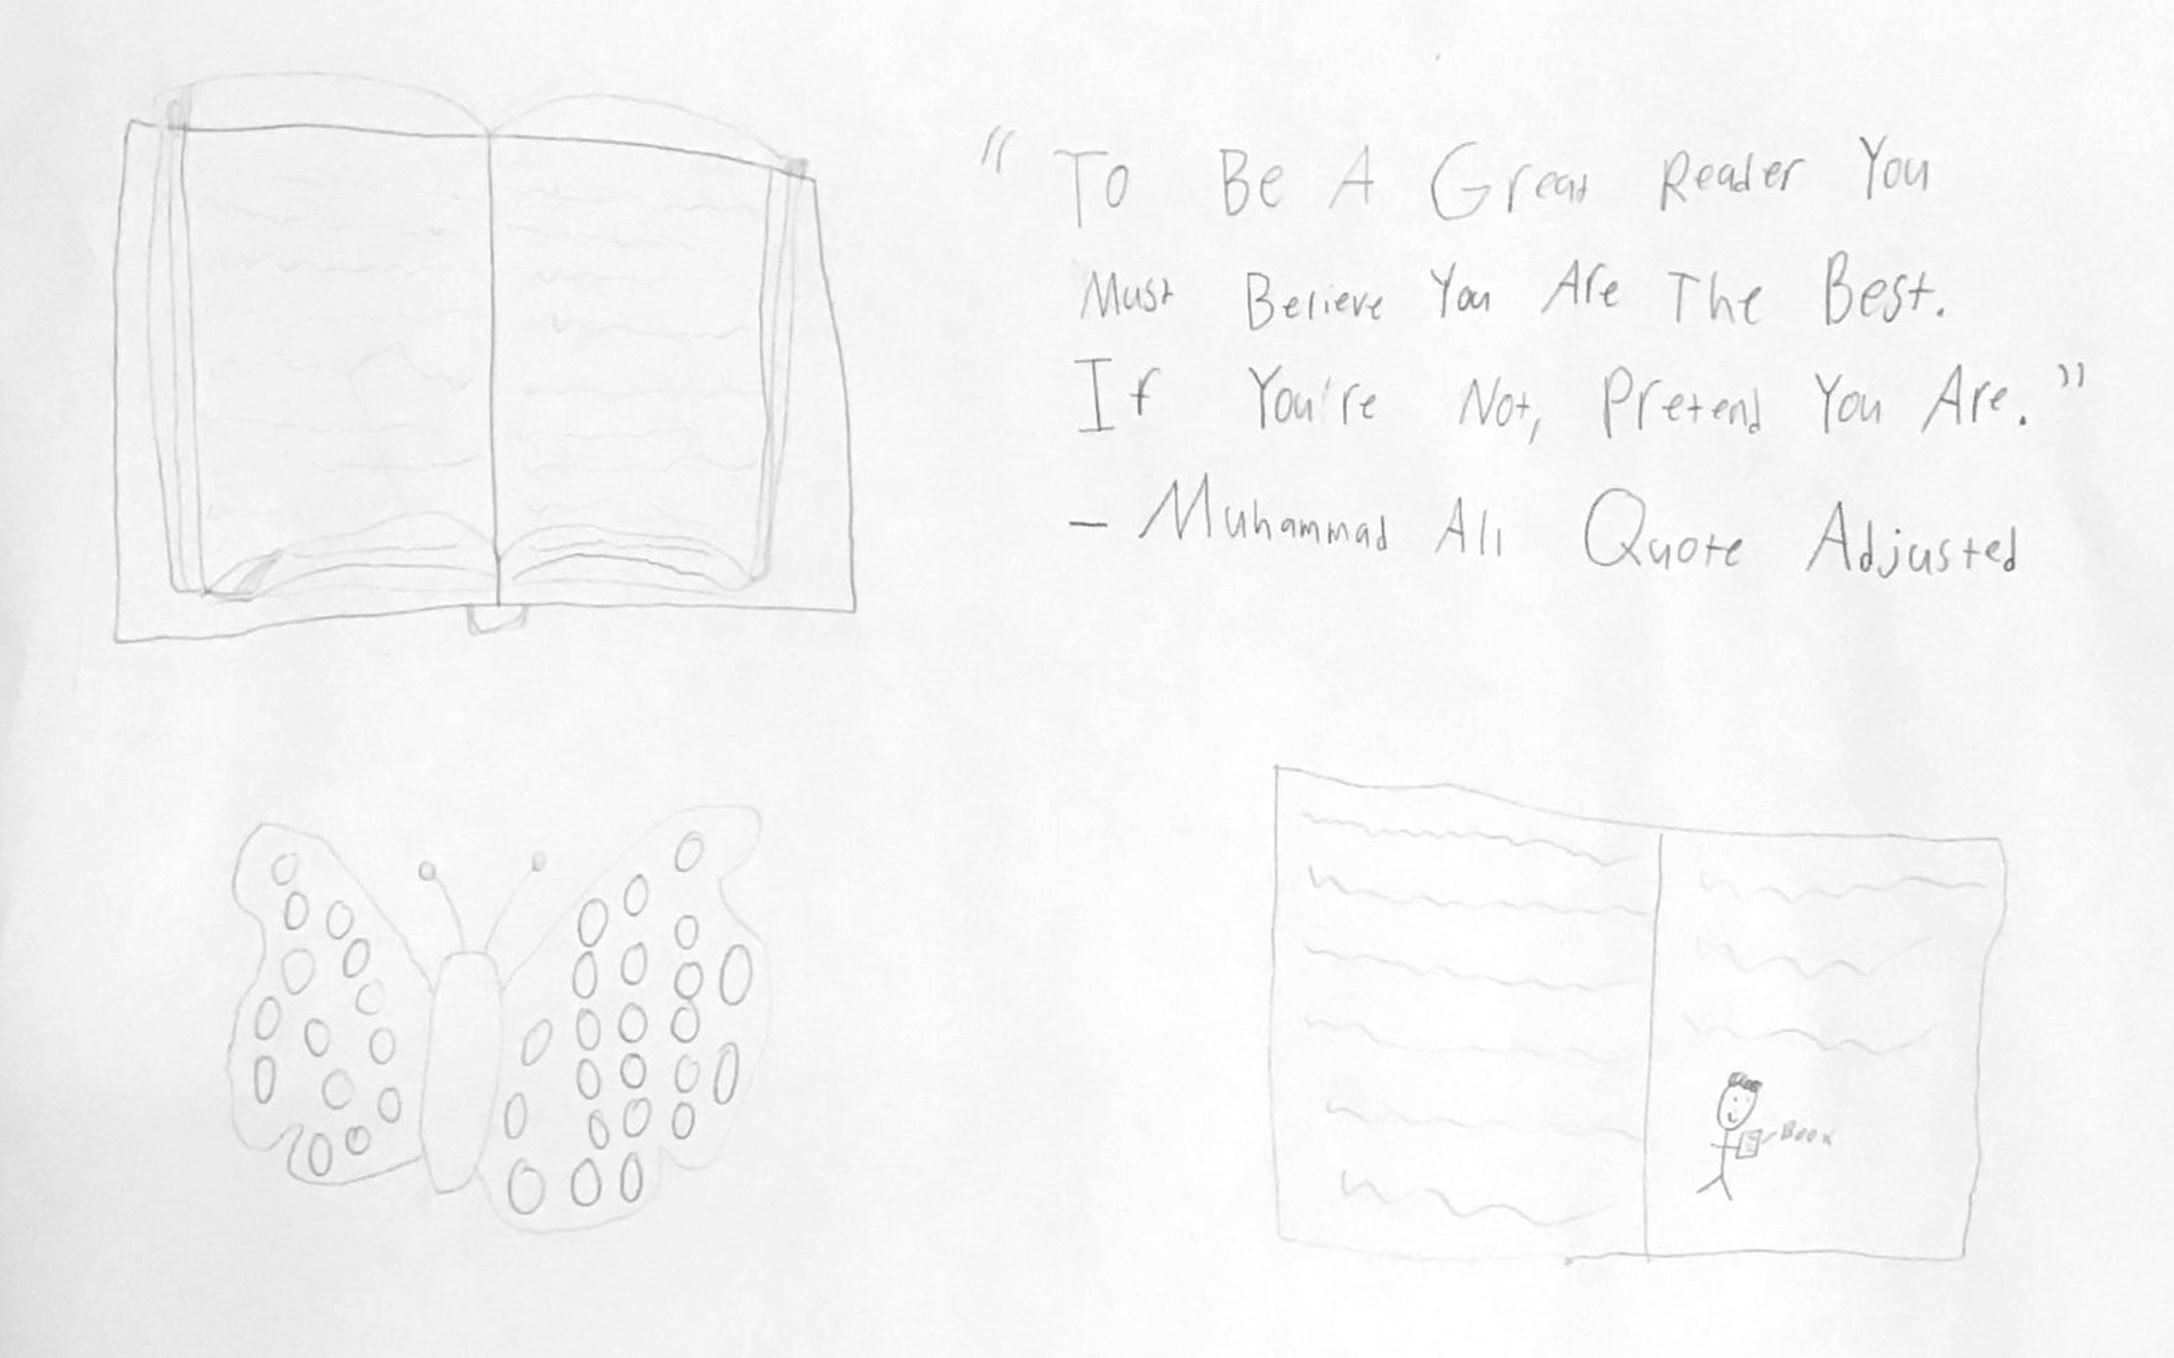 "To Be A Great Reader You
Must Believe You Are The Best.
If You're Not, Pretend You Are."
- Muhammad Ali Quote Adjusted
Book